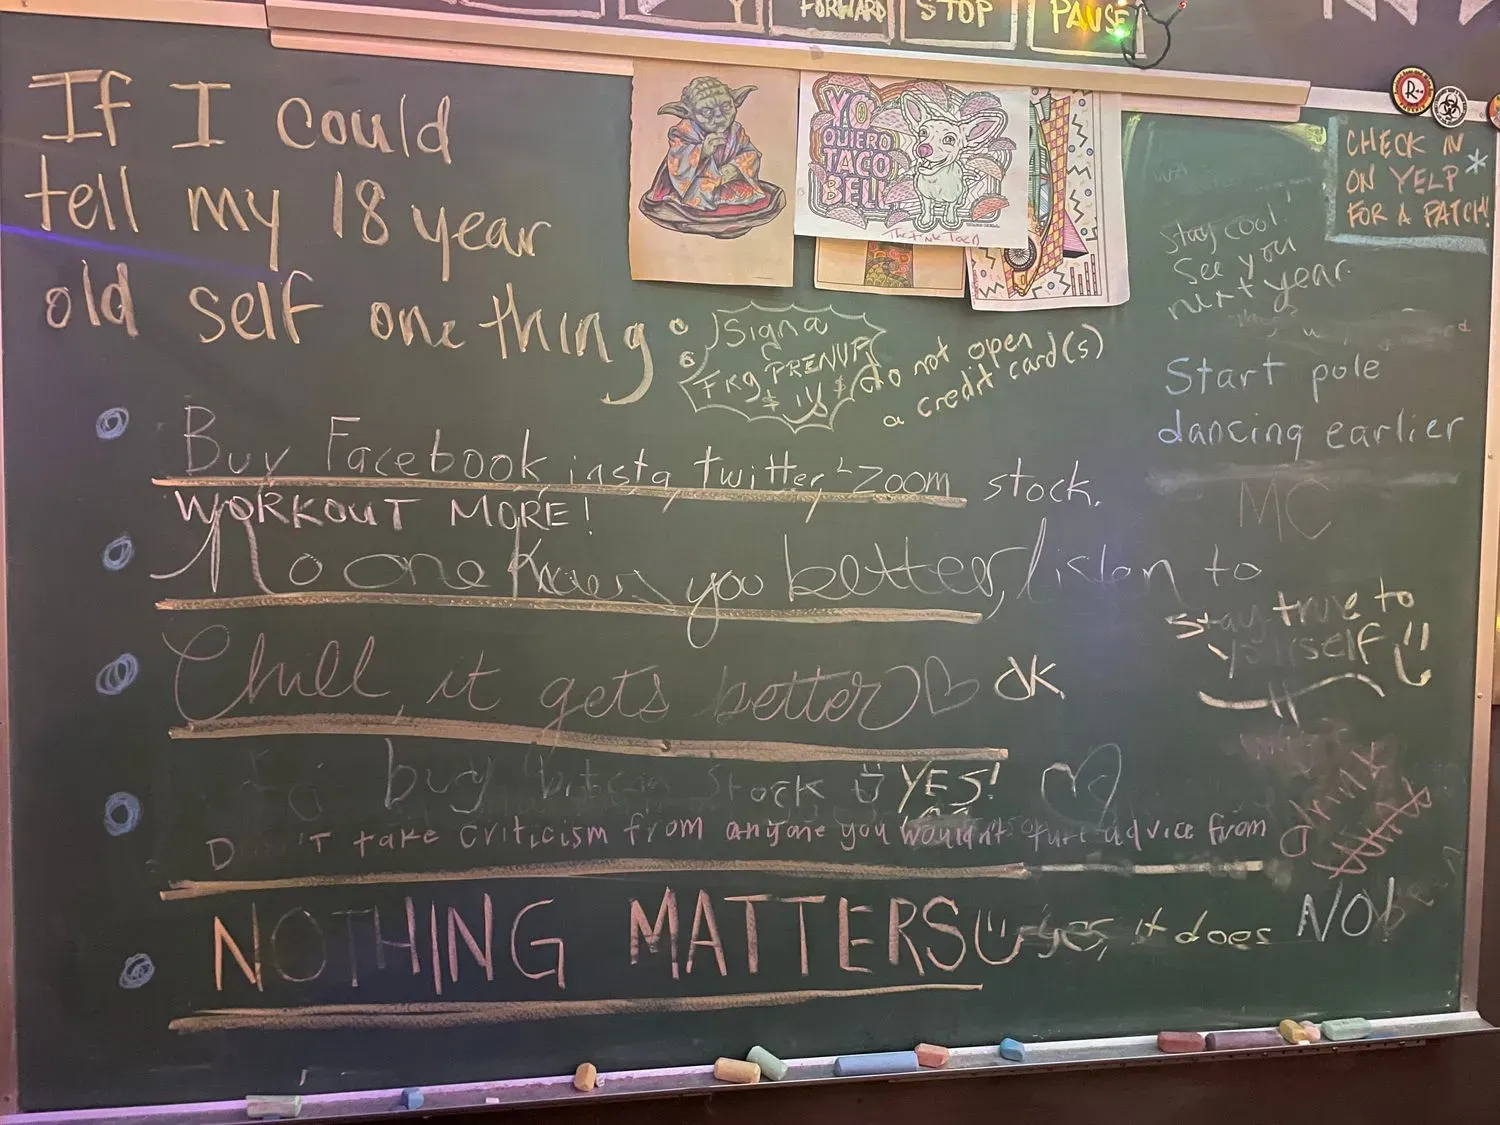 FORWARD
STOP
PAUSE
If I could
tell my 18 year
old self one thing:
YO
QUIERO
TACO
BELL
The Pink Taco
R
CHECK IN
ON YELP*
FOR A PATCH!
Stay cool!
See you
next year.
Sign a
FKG PRENUP
$ $
do not open
a credit card(s)
Start pole
dancing earlier
Buy Facebook, insta, twitter, Zoom stock.
WORKOUT MORE!
MC
No one knows you better, listen to
Stay true to
yourself
Chill, it gets better
buy bitcoin stock YES!
D 'T take criticism from anyone you wouldn't advice from
NOTHING MATTERS yes, it does NO